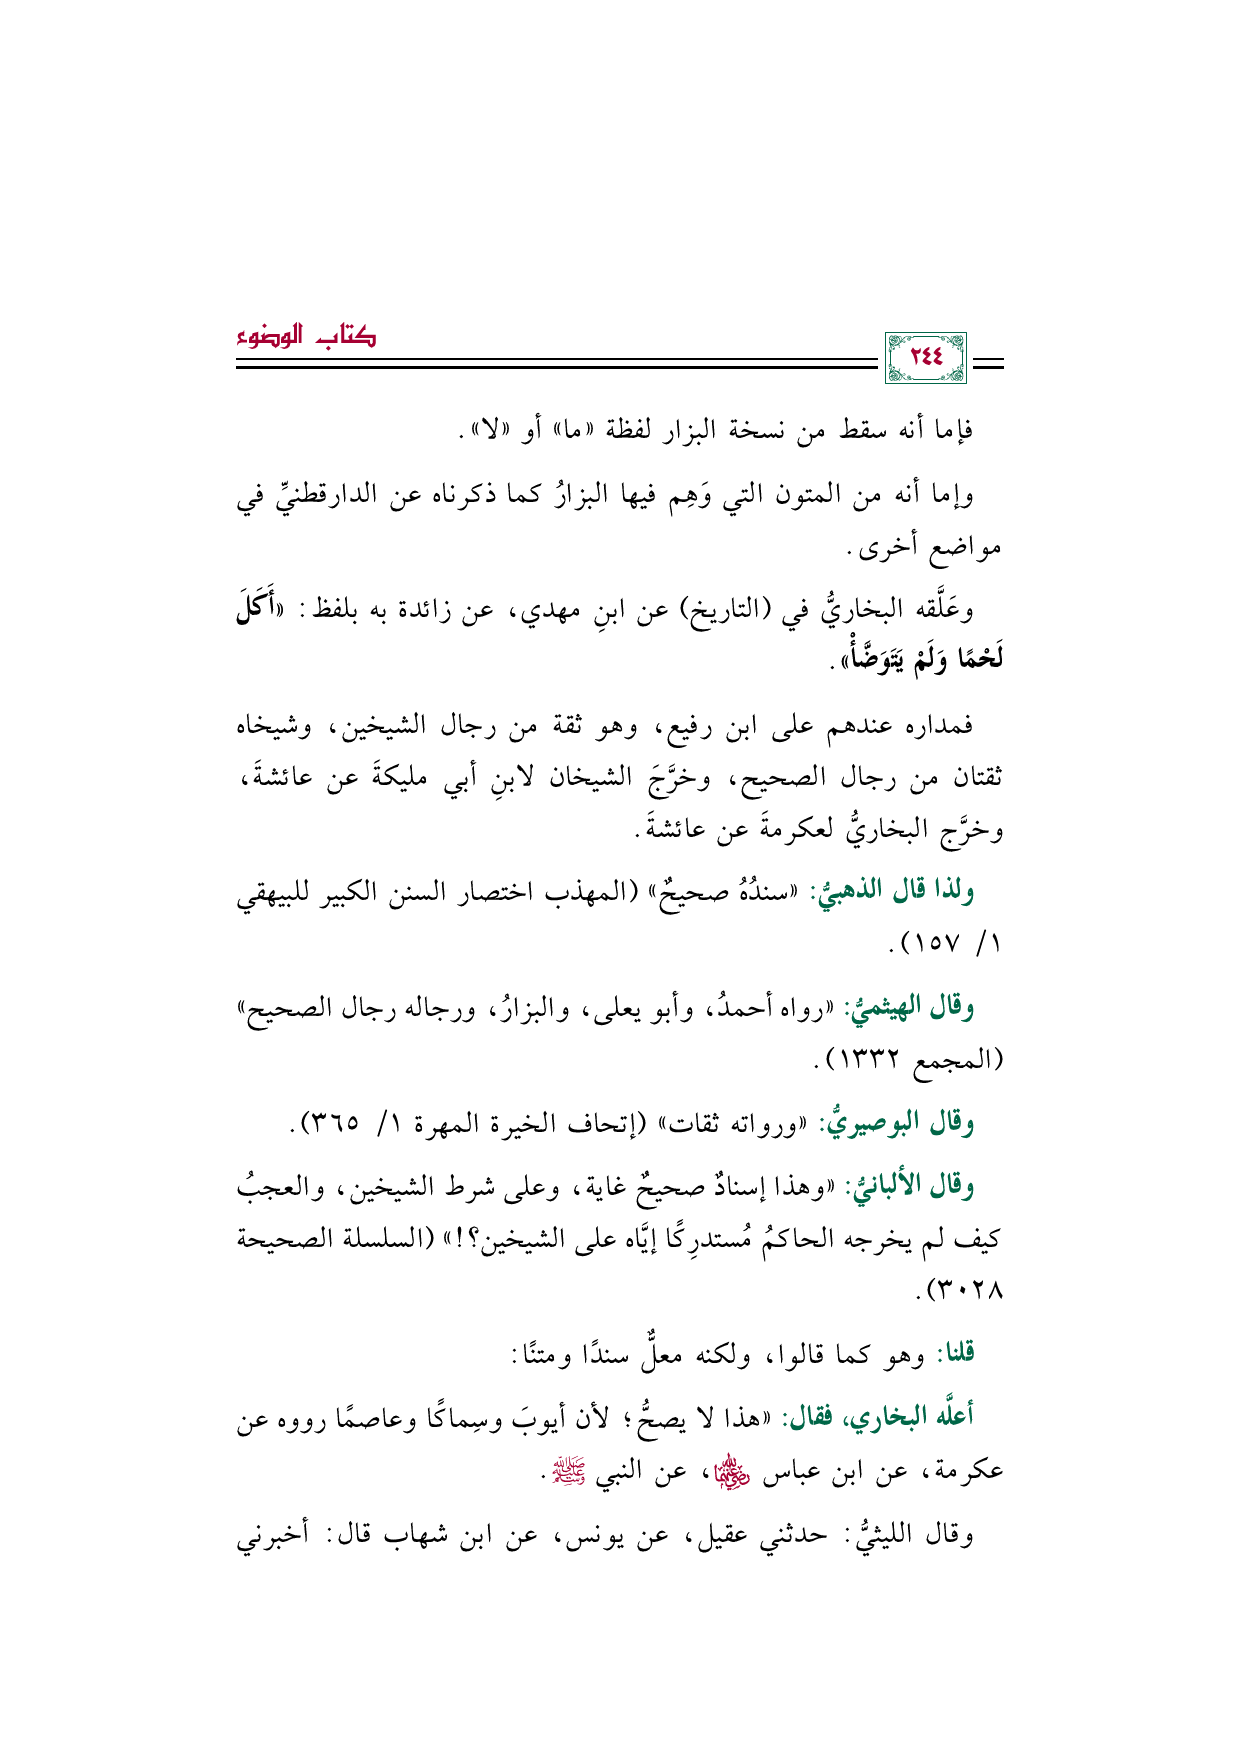 كتاب الوضوء
٢٤٤
فإما أنه سقط من نسخة البزار لفظة «ما» أو «لا».
وإما أنه من المتون التي وَهِم فيها البزارُ كما ذكرناه عن الدارقطنيِّ في
مواضع أخرى.
وعَلَّقه البخاريُّ في (التاريخ) عن ابنِ مهدي، عن زائدة به بلفظ: «أَكَلَ
لَحْمًا وَلَمْ يَتَوَضَّأْ».
فمداره عندهم على ابن رفيع، وهو ثقة من رجال الشيخين، وشيخاه
ثقتان من رجال الصحيح، وخرَّجَ الشيخان لابنِ أبي مليكةَ عن عائشةَ،
وخرَّج البخاريُّ لعكرمةَ عن عائشةَ.
ولذا قال الذهبيُّ: «سندُهُ صحيحٌ» (المهذب اختصار السنن الكبير للبيهقي
١/ ١٥٧).
وقال الهيثميُّ: «رواه أحمدُ، وأبو يعلى، والبزارُ، ورجاله رجال الصحيح»
(المجمع ١٣٣٢).
وقال البوصيريُّ: «ورواته ثقات» (إتحاف الخيرة المهرة ١/ ٣٦٥).
وقال الألبانيُّ: «وهذا إسنادٌ صحيحٌ غاية، وعلى شرط الشيخين، والعجبُ
كيف لم يخرجه الحاكمُ مُستدرِكًا إيَّاه على الشيخين؟!» (السلسلة الصحيحة
٣٠٢٨).
قلنا: وهو كما قالوا، ولكنه معلٌّ سندًا ومتنًا:
أعلَّه البخاري، فقال: «هذا لا يصحُّ؛ لأن أيوبَ وسِماكًا وعاصمًا رووه عن
عكرمة، عن ابن عباس رضي الله عنهما، عن النبي ﷺ.
وقال الليثيُّ: حدثني عقيل، عن يونس، عن ابن شهاب قال: أخبرني